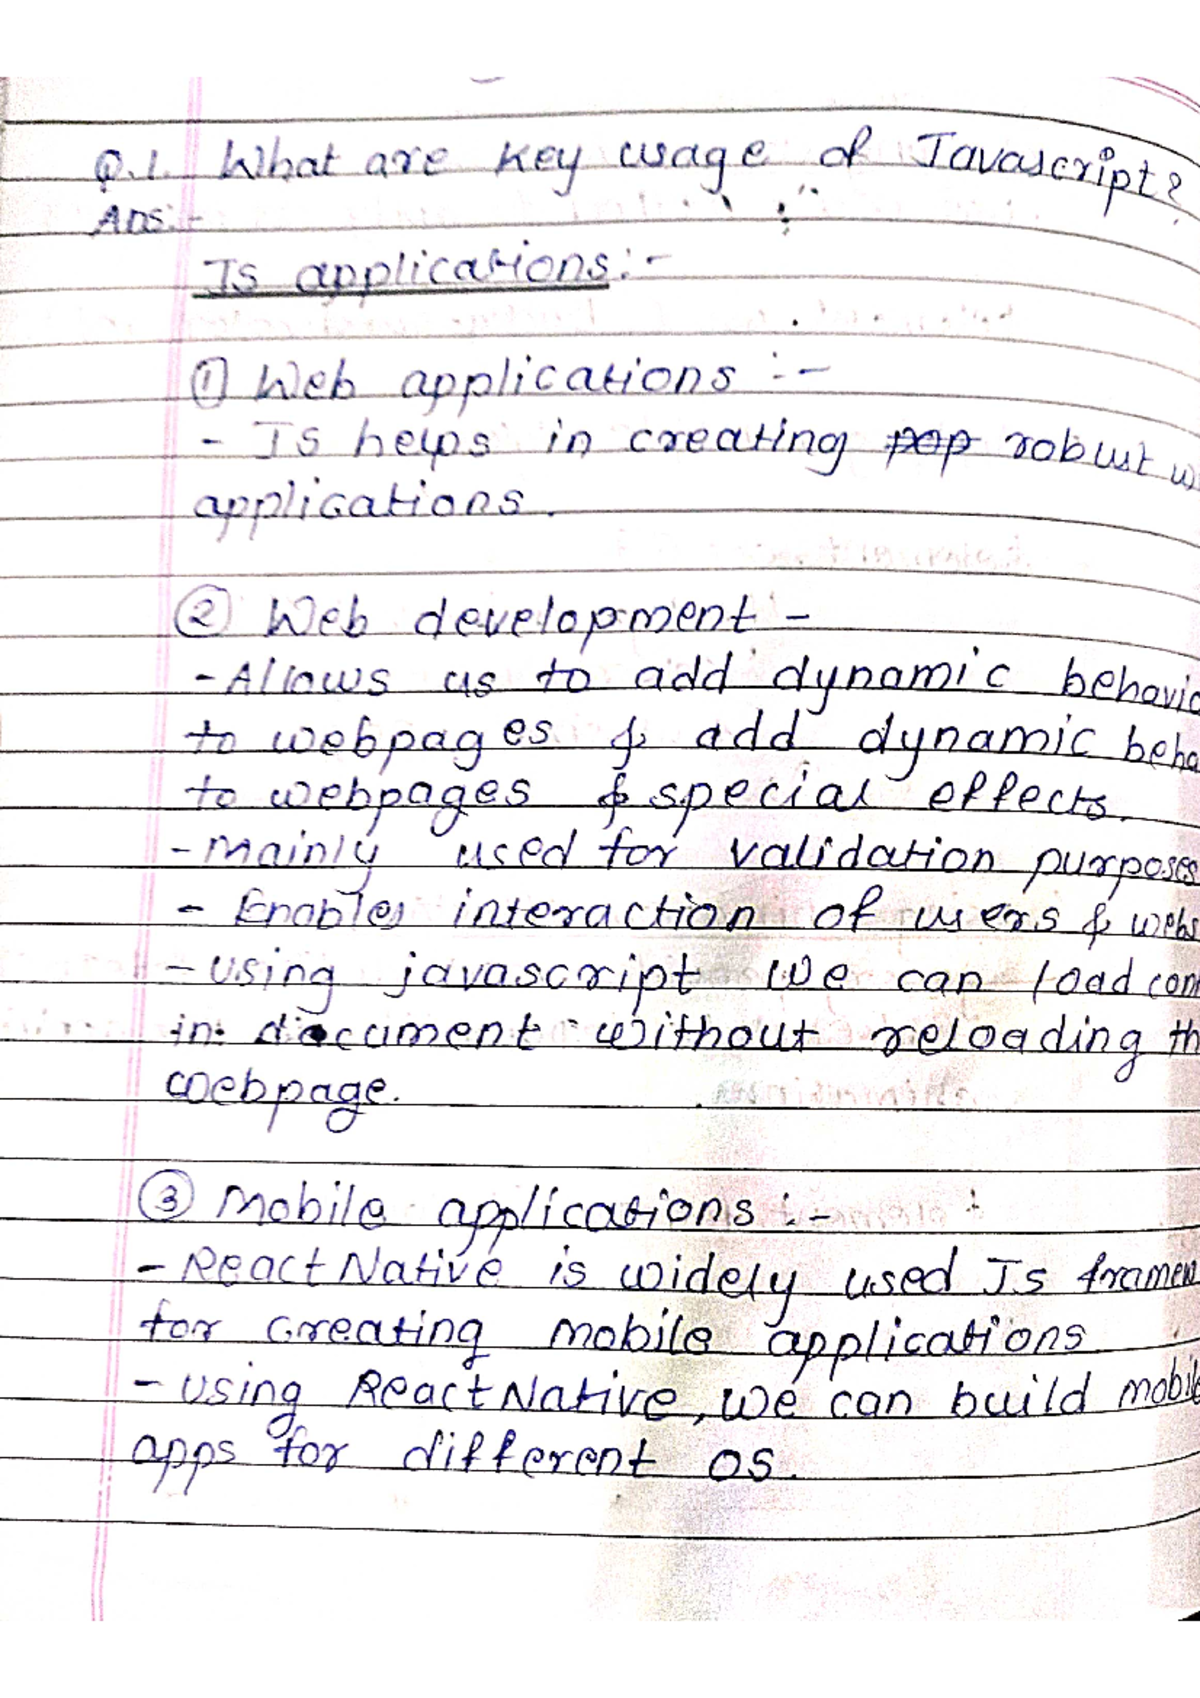 Q.1. What are key usage of Javascript?
Ans:-
Js applications:-
① Web applications :-
- JS helps in creating pop robust w
applications.
② Web development -
- Allows us to add dynamic behavio
to webpages & add dynamic beha
to webpages & special effects.
- Mainly used for validation purposes
- Enables interaction of users & webs
- Using javascript we can load con
in document without reloading th
webpage.
③ Mobile applications :-
- React Native is widely used Js framew
for creating mobile applications
- Using React Native, we can build mobile
apps for different OS.